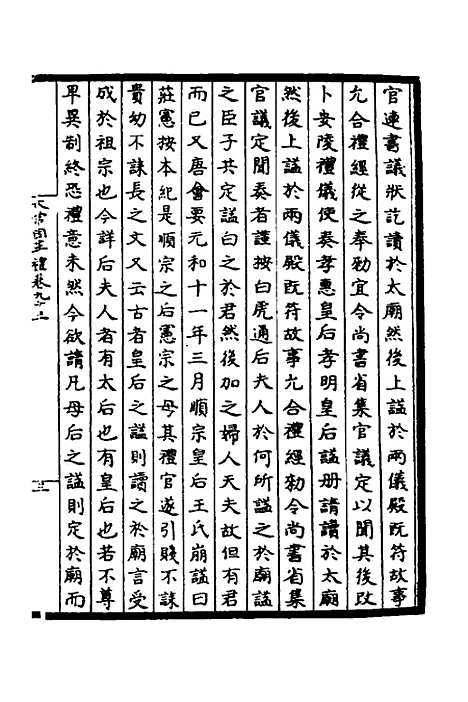 官連書議狀訖讀於太廟然後上謚於兩儀殿既符故事
允合禮經從之奉勑宜令尚書省集官議定以聞其後改
卜安陵禮儀使奏孝惠皇后孝明皇后謚册請讀於太廟
然後上謚於兩儀殿既符故事允合禮經勑令尚書省集
官議定聞奏者謹按白虎通后夫人於何所謚之於廟謚
之臣子共定謚白之於君然後加之婦人天夫故但有君
而已又唐會要元和十一年三月順宗皇后王氏崩謚曰
莊憲按本紀是順宗之后憲宗之母其禮官遂引賤不誄
貴幼不誄長之文又云古者皇后之謚則讀之於廟言受
成於祖宗也今詳后夫人者有太后也有皇后也若不尊
卑異制終恐禮意未然今欲請凡母后之謚則定於廟而
太常因革禮卷九十三
三